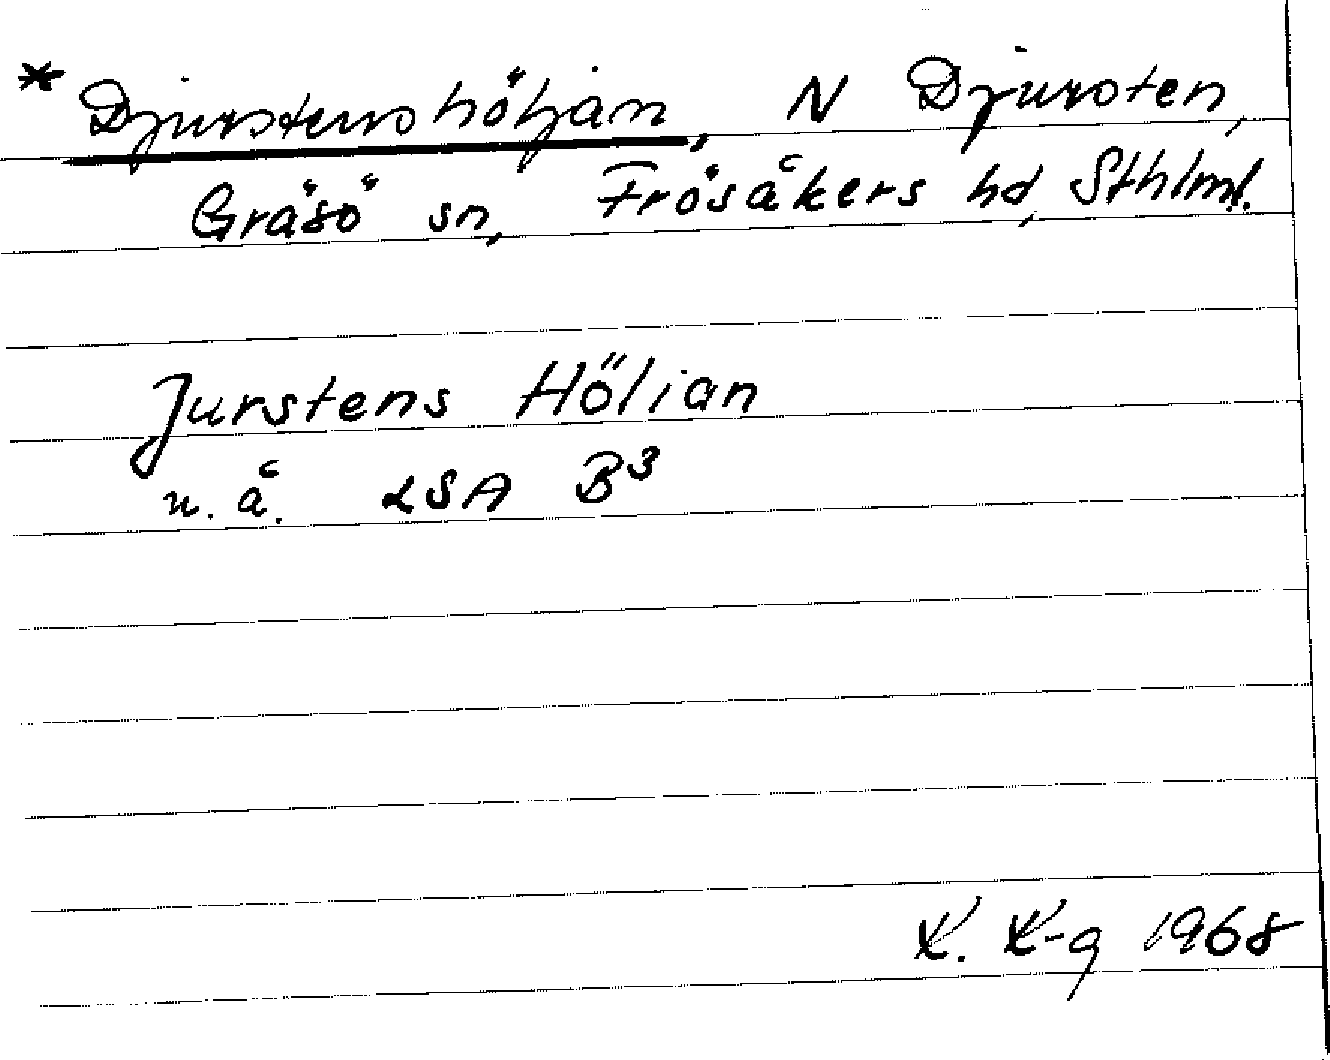 * Djurstenshöljan, N Djursten,
Gräsö sn, Frösåkers hd, Sthlm l.
Jurstens Hölian
u. å. LSA B3
K. K-g 1968